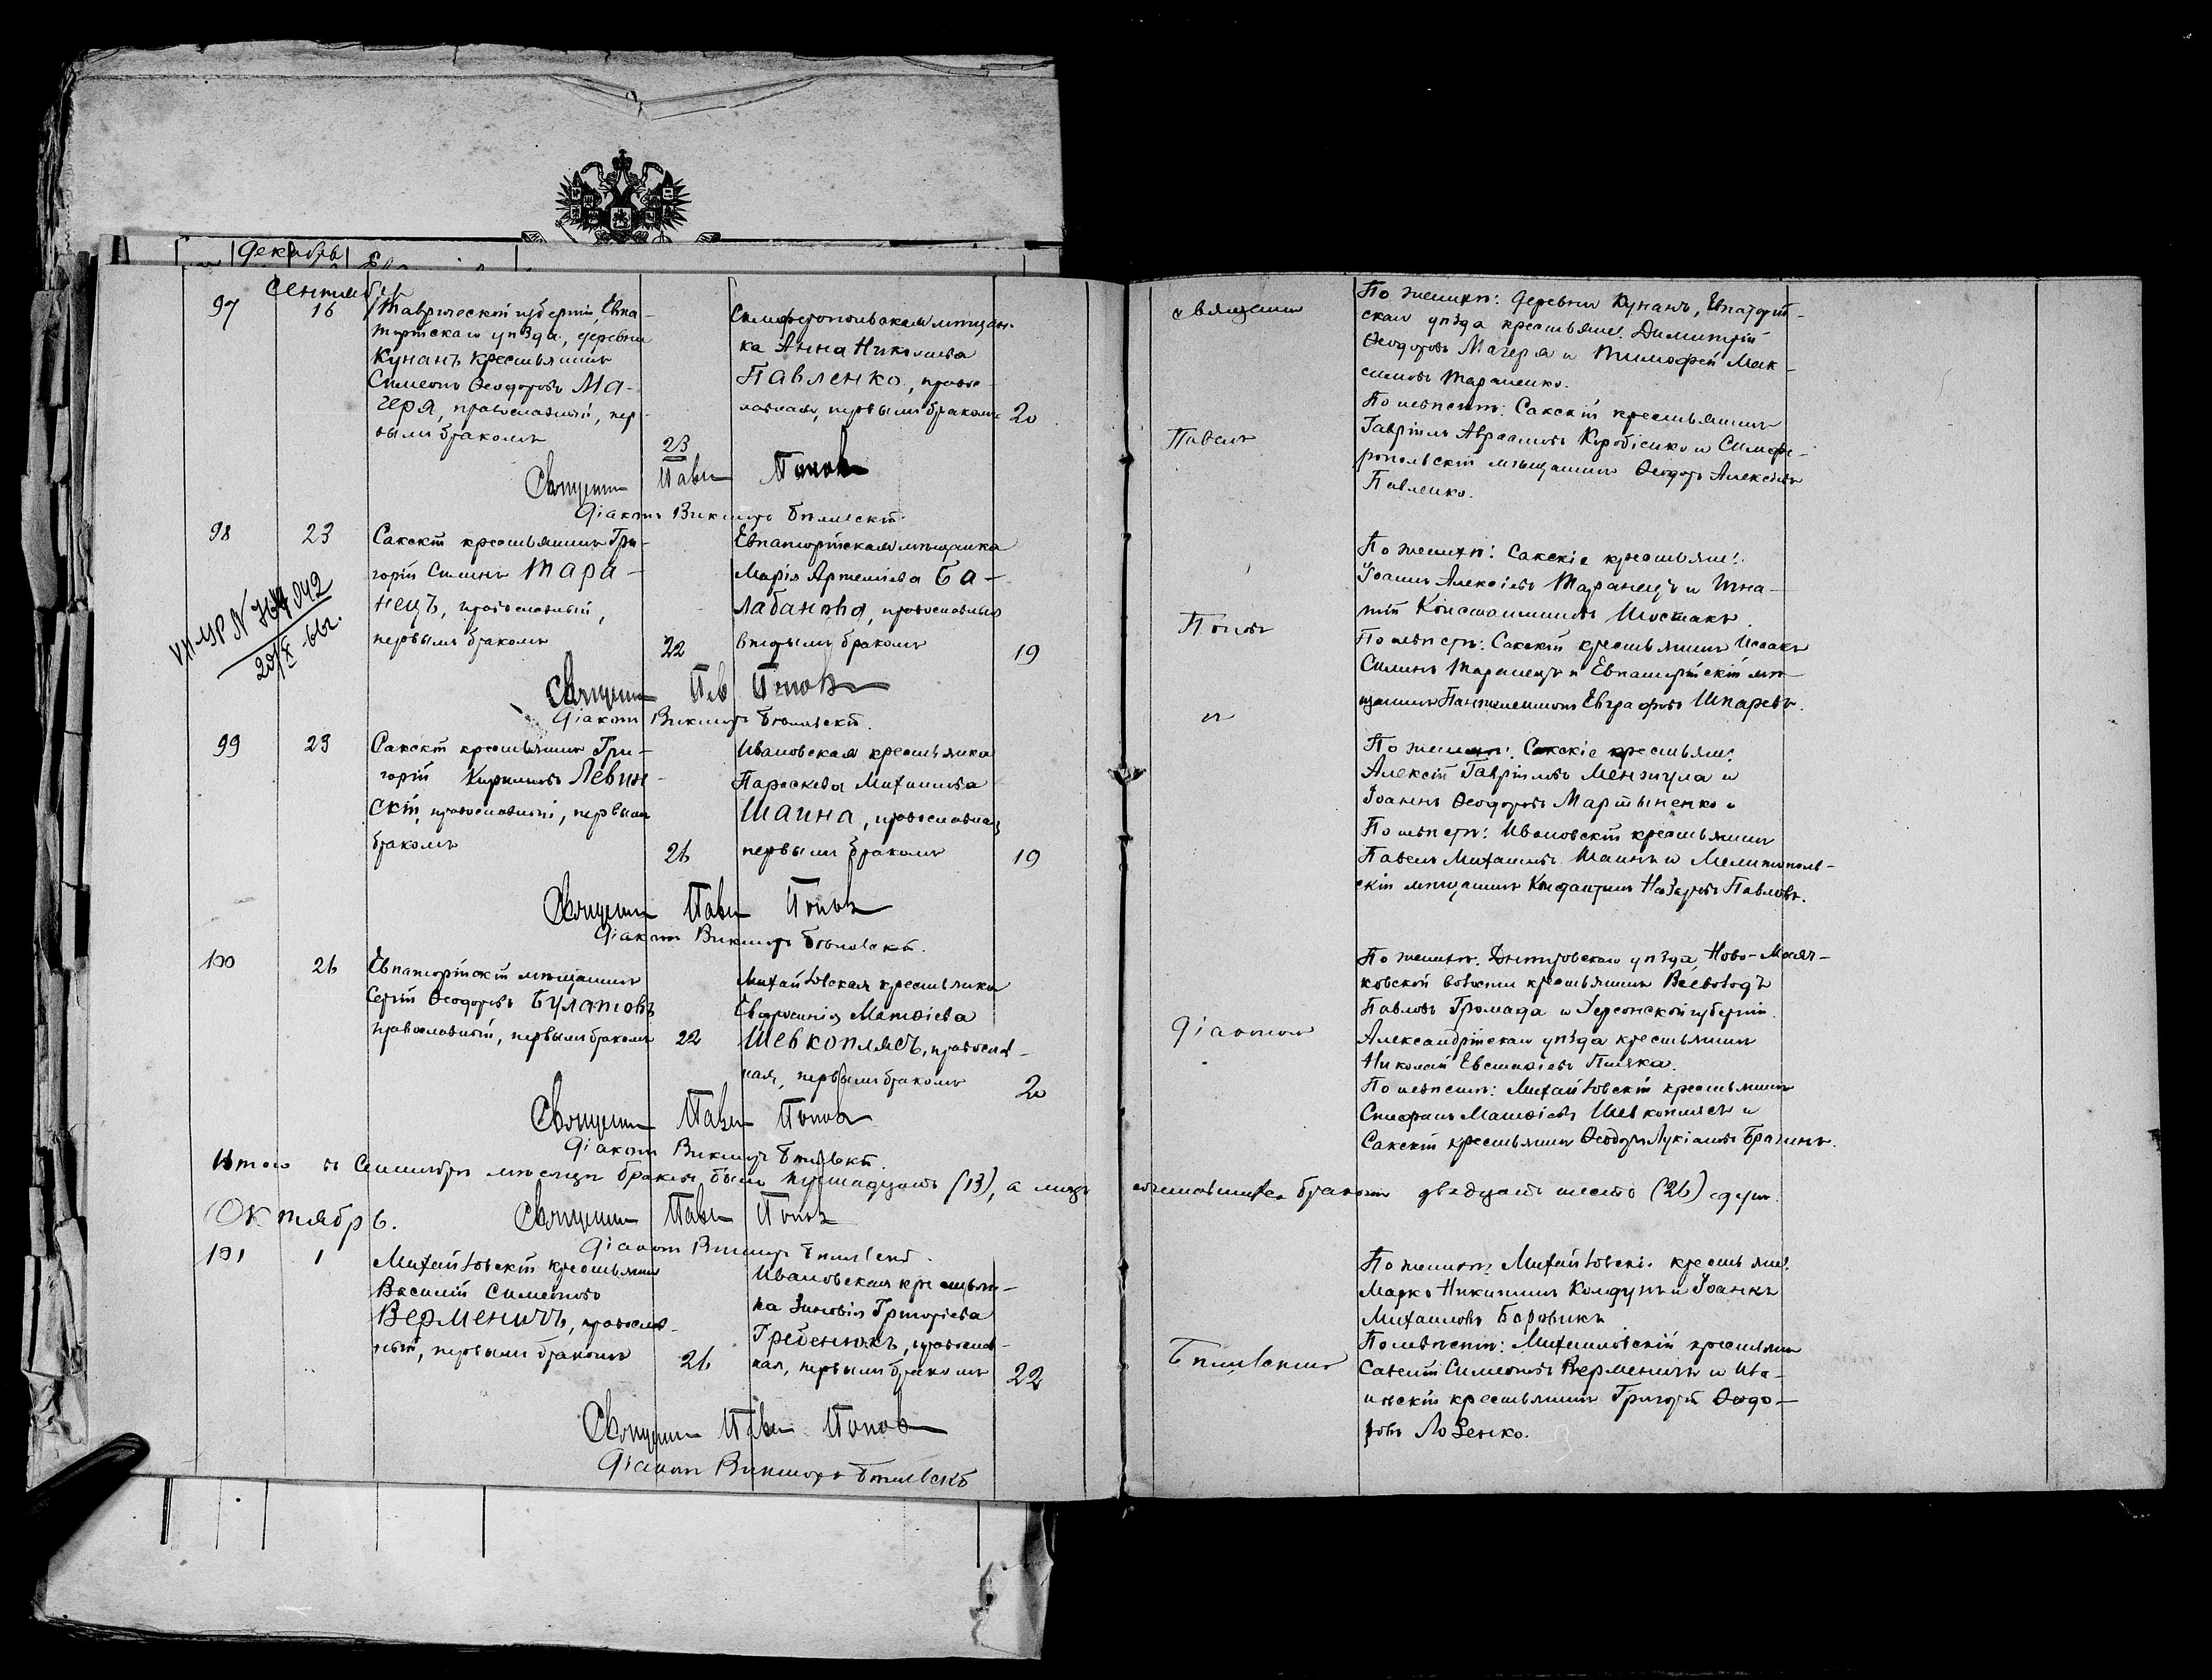 Декабрь
Сентябрь
97
16
Таврической губерніи, Евпа-
торійскаго уѣзда, деревни
Кунанъ крестьянинъ
Симеонъ Ѳеодоровъ Ма-
черя, православный, пер-
вымъ бракомъ
23
Симферопольская мѣщан-
ка Анна Николаева
Павленко, правос-
лавная, первымъ бракомъ
20
Священникъ Павелъ Поповъ
Діаконъ Викторъ
98
23
Сакскій крестьянинъ Гри-
горій Силинъ Тара-
нецъ, православный,
первымъ бракомъ
22
Евпаторійская мѣщанка
Марія Артеміева Ба-
лабанова, православная
вторымъ бракомъ
19
VII-ЯР №
20/X-66г.
Священникъ Пав Поповъ
Діаконъ Викторъ
99
23
Сакскій крестьянинъ Гри-
горій Кириловъ Левин-
скій, православный, первымъ
бракомъ
26
Ивановская крестьянка
Параскева Михаилова
Шаина, православная,
первымъ бракомъ
19
Священникъ Павелъ Поповъ
Діаконъ Викторъ
100
26
Евпаторійскій мѣщанинъ
Сергій Ѳеодоровъ Булатовъ
православный, первымъ бракомъ
22
Михайловская крестьянка
Евфросинія Матѳіева
Шевкоплясъ, православ-
ная, первымъ бракомъ
20
Священникъ Павелъ Поповъ
Діаконъ Викторъ
Итого въ Сентябрѣ мѣсяцѣ браковъ было тринадцать (13), а лицъ
Октябрь.
Священникъ Павелъ Поповъ
Діаконъ Викторъ
101
1
Михайловскій крестьянинъ
Василій Симеоновъ
Верменичъ, православ-
ный, первымъ бракомъ
26
Ивановская крестьян-
ка Зиновія Григоріева
Гребенюкъ, православ-
ная, первымъ бракомъ
22
Священникъ Павелъ Поповъ
Діаконъ Викторъ
священникъ
Павелъ
Поповъ
и
діаконъ
По женихѣ: деревни Кунанъ, Евпаторій-
скаго уѣзда крестьяне: Димитрій
Ѳеодоровъ Мачеря и Тимофей Мак-
симовъ Тараненко.
По невѣстѣ: Сакскій крестьянинъ
Гавріилъ Авраамовъ и Симфе-
ропольскій мѣщанинъ Ѳеодоръ Алексѣевъ
Павленко.
По женихѣ: Сакскіе крестьяне:
Іоаннъ Алексіевъ Таранецъ и Игна-
тій Константиновъ Шостакъ.
По невѣстѣ: Сакскій крестьянинъ Исаакъ
Силинъ Таранецъ и Евпаторійскій мѣ-
щанинъ Пантелеимонъ Евграфовъ Шпаревъ.
По женихѣ: Сакскіе крестьяне:
Алексій Гавріиловъ Менжула и
Іоаннъ Ѳеодоровъ Мартыненко и
По невѣстѣ: Ивановскій крестьянинъ
Павелъ Михаиловъ Шаинъ и Мелитополь-
скій мѣщанинъ Назаровъ Павловъ.
По женихѣ: Днѣпровскаго уѣзда, Ново-Маяч-
ковской волости крестьянинъ Всеволодъ
Павловъ Громада и Херсонской губерніи
Александрійскаго уѣзда крестьянинъ
Николай Евстаѳіевъ
По невѣстѣ: Михайловскій крестьянинъ
Стефанъ Матѳіевъ Шевкоплясъ и
Сакскій крестьянинъ Ѳеодоръ Лукіановъ
сочетавшихся бракомъ двадцать шесть (26) душъ.
По женихѣ: Михайловскіе крестьяне:
Марко Никитинъ Колдунъ и Іоаннъ
Михаиловъ Боровикъ
По невѣстѣ: Михайловскій крестьянинъ
Савелій Симеоновъ Верменичъ и Ива-
новскій крестьянинъ Григорій Ѳеодо-
ровъ Лозенко.